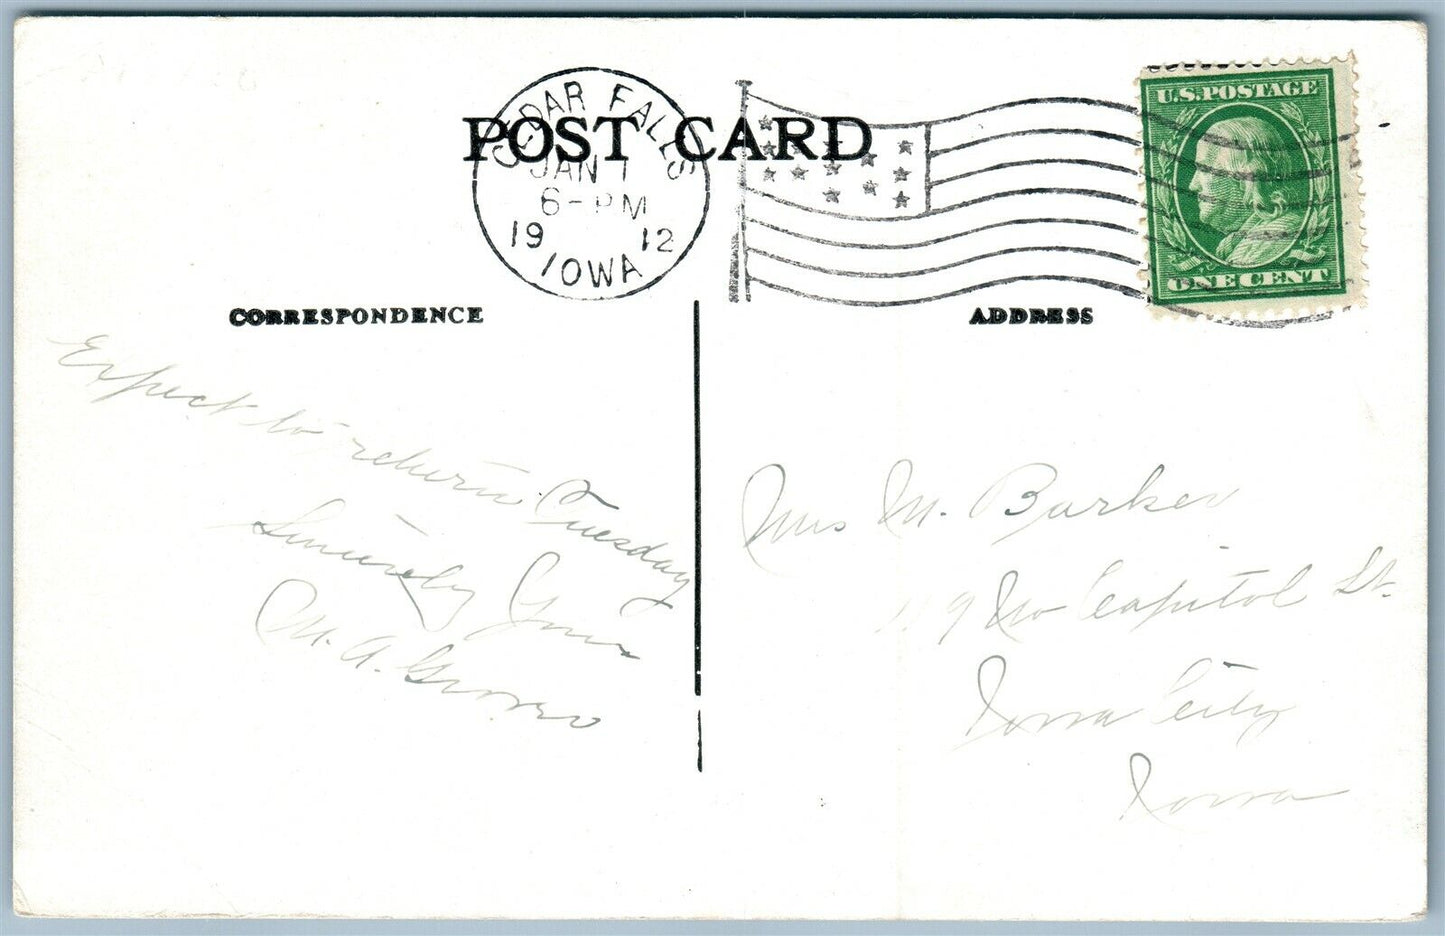 POST CARD
CEDAR FALLS
JAN 1
6-PM
19 12
IOWA
U.S. POSTAGE
ONE CENT
CORRESPONDENCE
ADDRESS
Expect to return Tuesday
Sincerely Yours
M. A.
Mrs M. Barker
No Capitol St.
Iowa City
Iowa